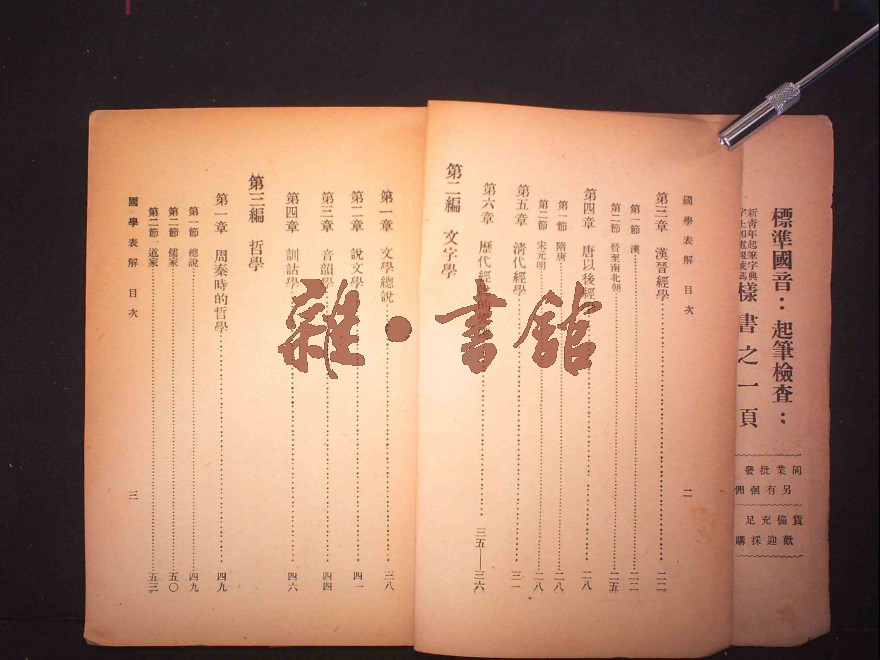 標準國音：起筆檢查：
新青年起筆字典
樣書之一頁
同業批發
另有強佣
貨備充足
歡迎採購
國學表解 目次 二
第三章 漢晉經學 二二
第一節 漢 二二
第二節 晉至南北朝 二五
第四章 唐以後經 二八
第一節 隋唐 二八
第二節 宋元明 二八
第五章 清代經學 三一
第六章 歷代經 三五—三六
第二編 文字學
第一章 文學總說 三八
第二章 說文學 四一
第三章 音韻學 四四
第四章 訓詁學 四六
第三編 哲學
第一章 周秦時的哲學 四九
第一節 總說 四九
第二節 儒家 五〇
第三節 道家 五三
國學表解 目次 三
雜·書館